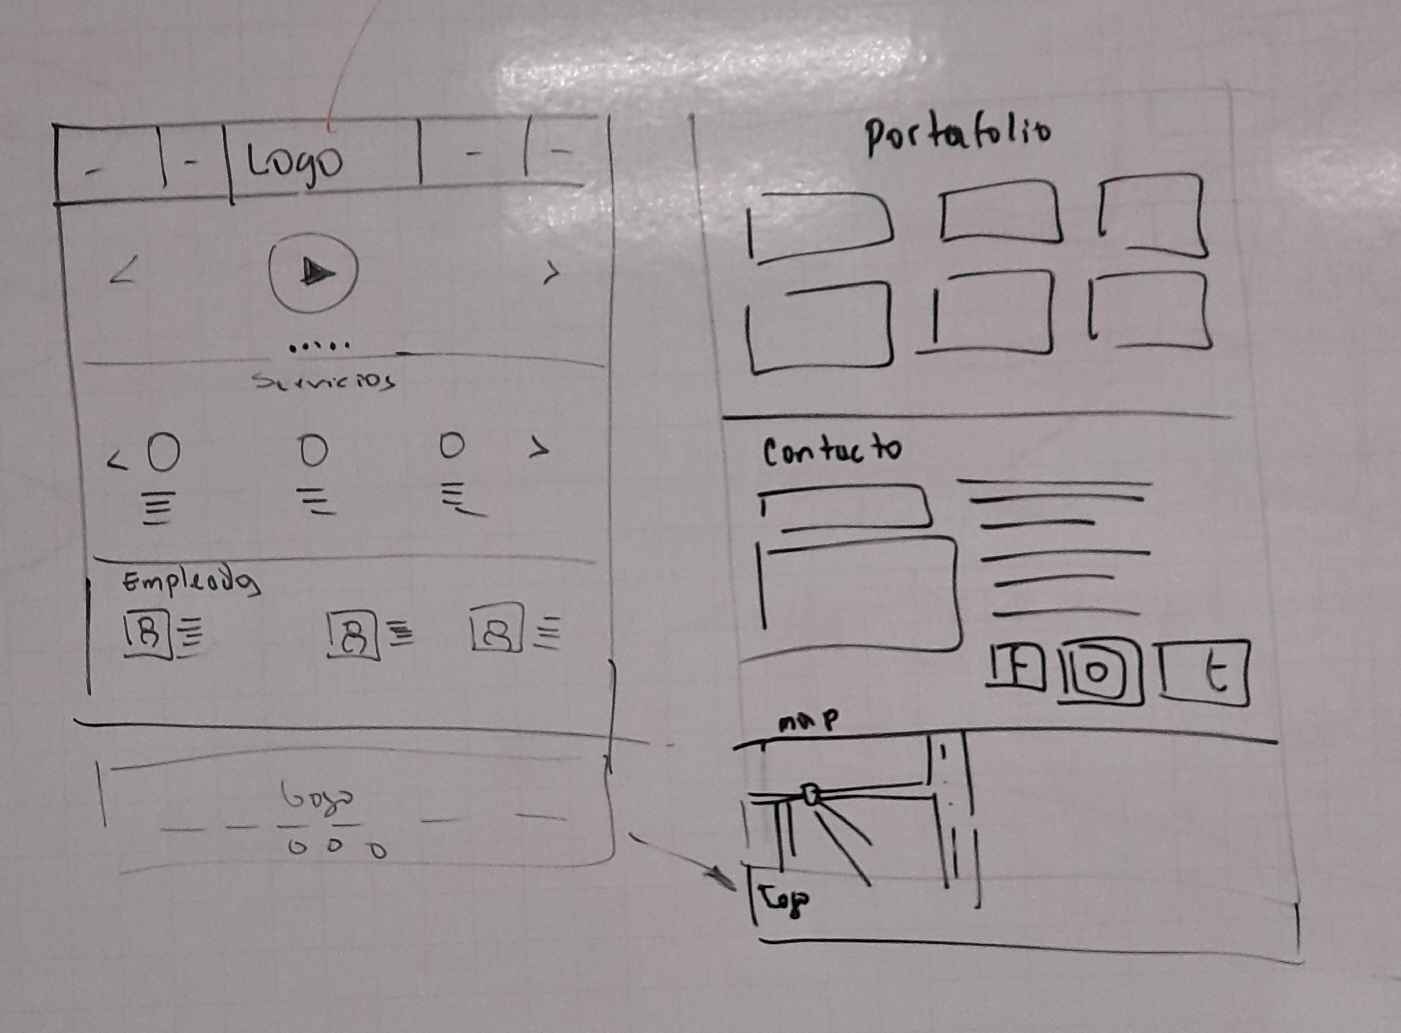 Logo
Servicios
Empleados
Logo
Portafolio
Contacto
F
t
map
Logo